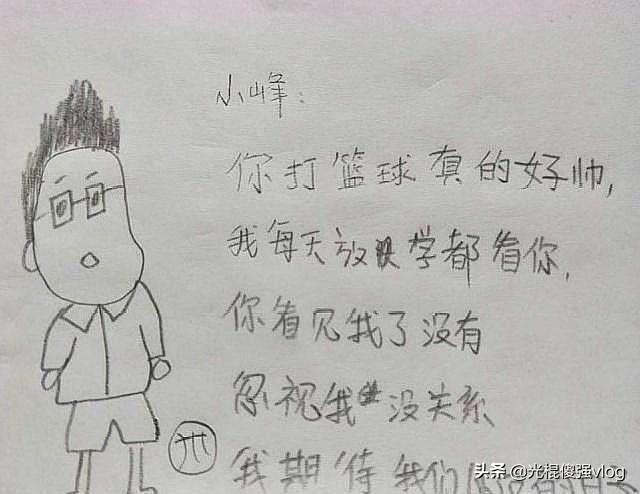 小峰：
你打篮球真的好帅，
我每天放学都看你，
你看见我了没有
忽视我 没关系
我期待我们
头条 @光棍傻强vlog